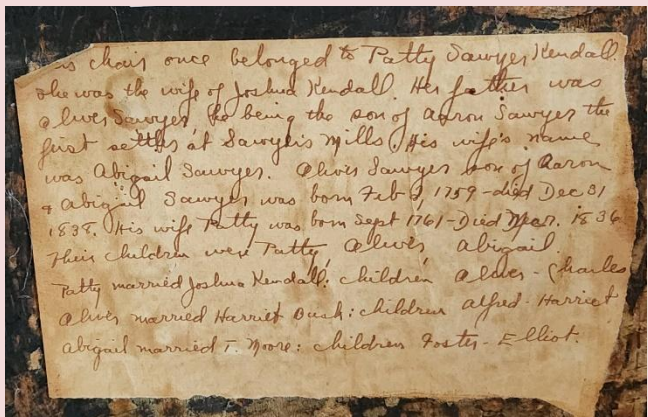 is chair once belonged to Patty Sawyer Kendall.
She was the wife of Joshua Kendall. Her father was
Oliver Sawyer, he being the son of Aaron Sawyer the
first settler at Sawyer's Mills. His wife's name
was Abigail Sawyer. Oliver Sawyer son of Aaron
& Abigail Sawyer was born Feb 9, 1759 - died Dec 31
1838. His wife Patty was born Sept 1761 - Died Mar. 1836
Their children were Patty, Oliver, Abigail.
Patty married Joshua Kendall: children Oliver - Charles
Oliver married Harriet Bush: children Alfred - Harriet
Abigail married T. Moore: children Foster - Elliot.